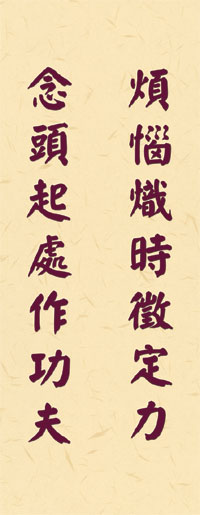 煩惱熾時徵定力
念頭起處作功夫